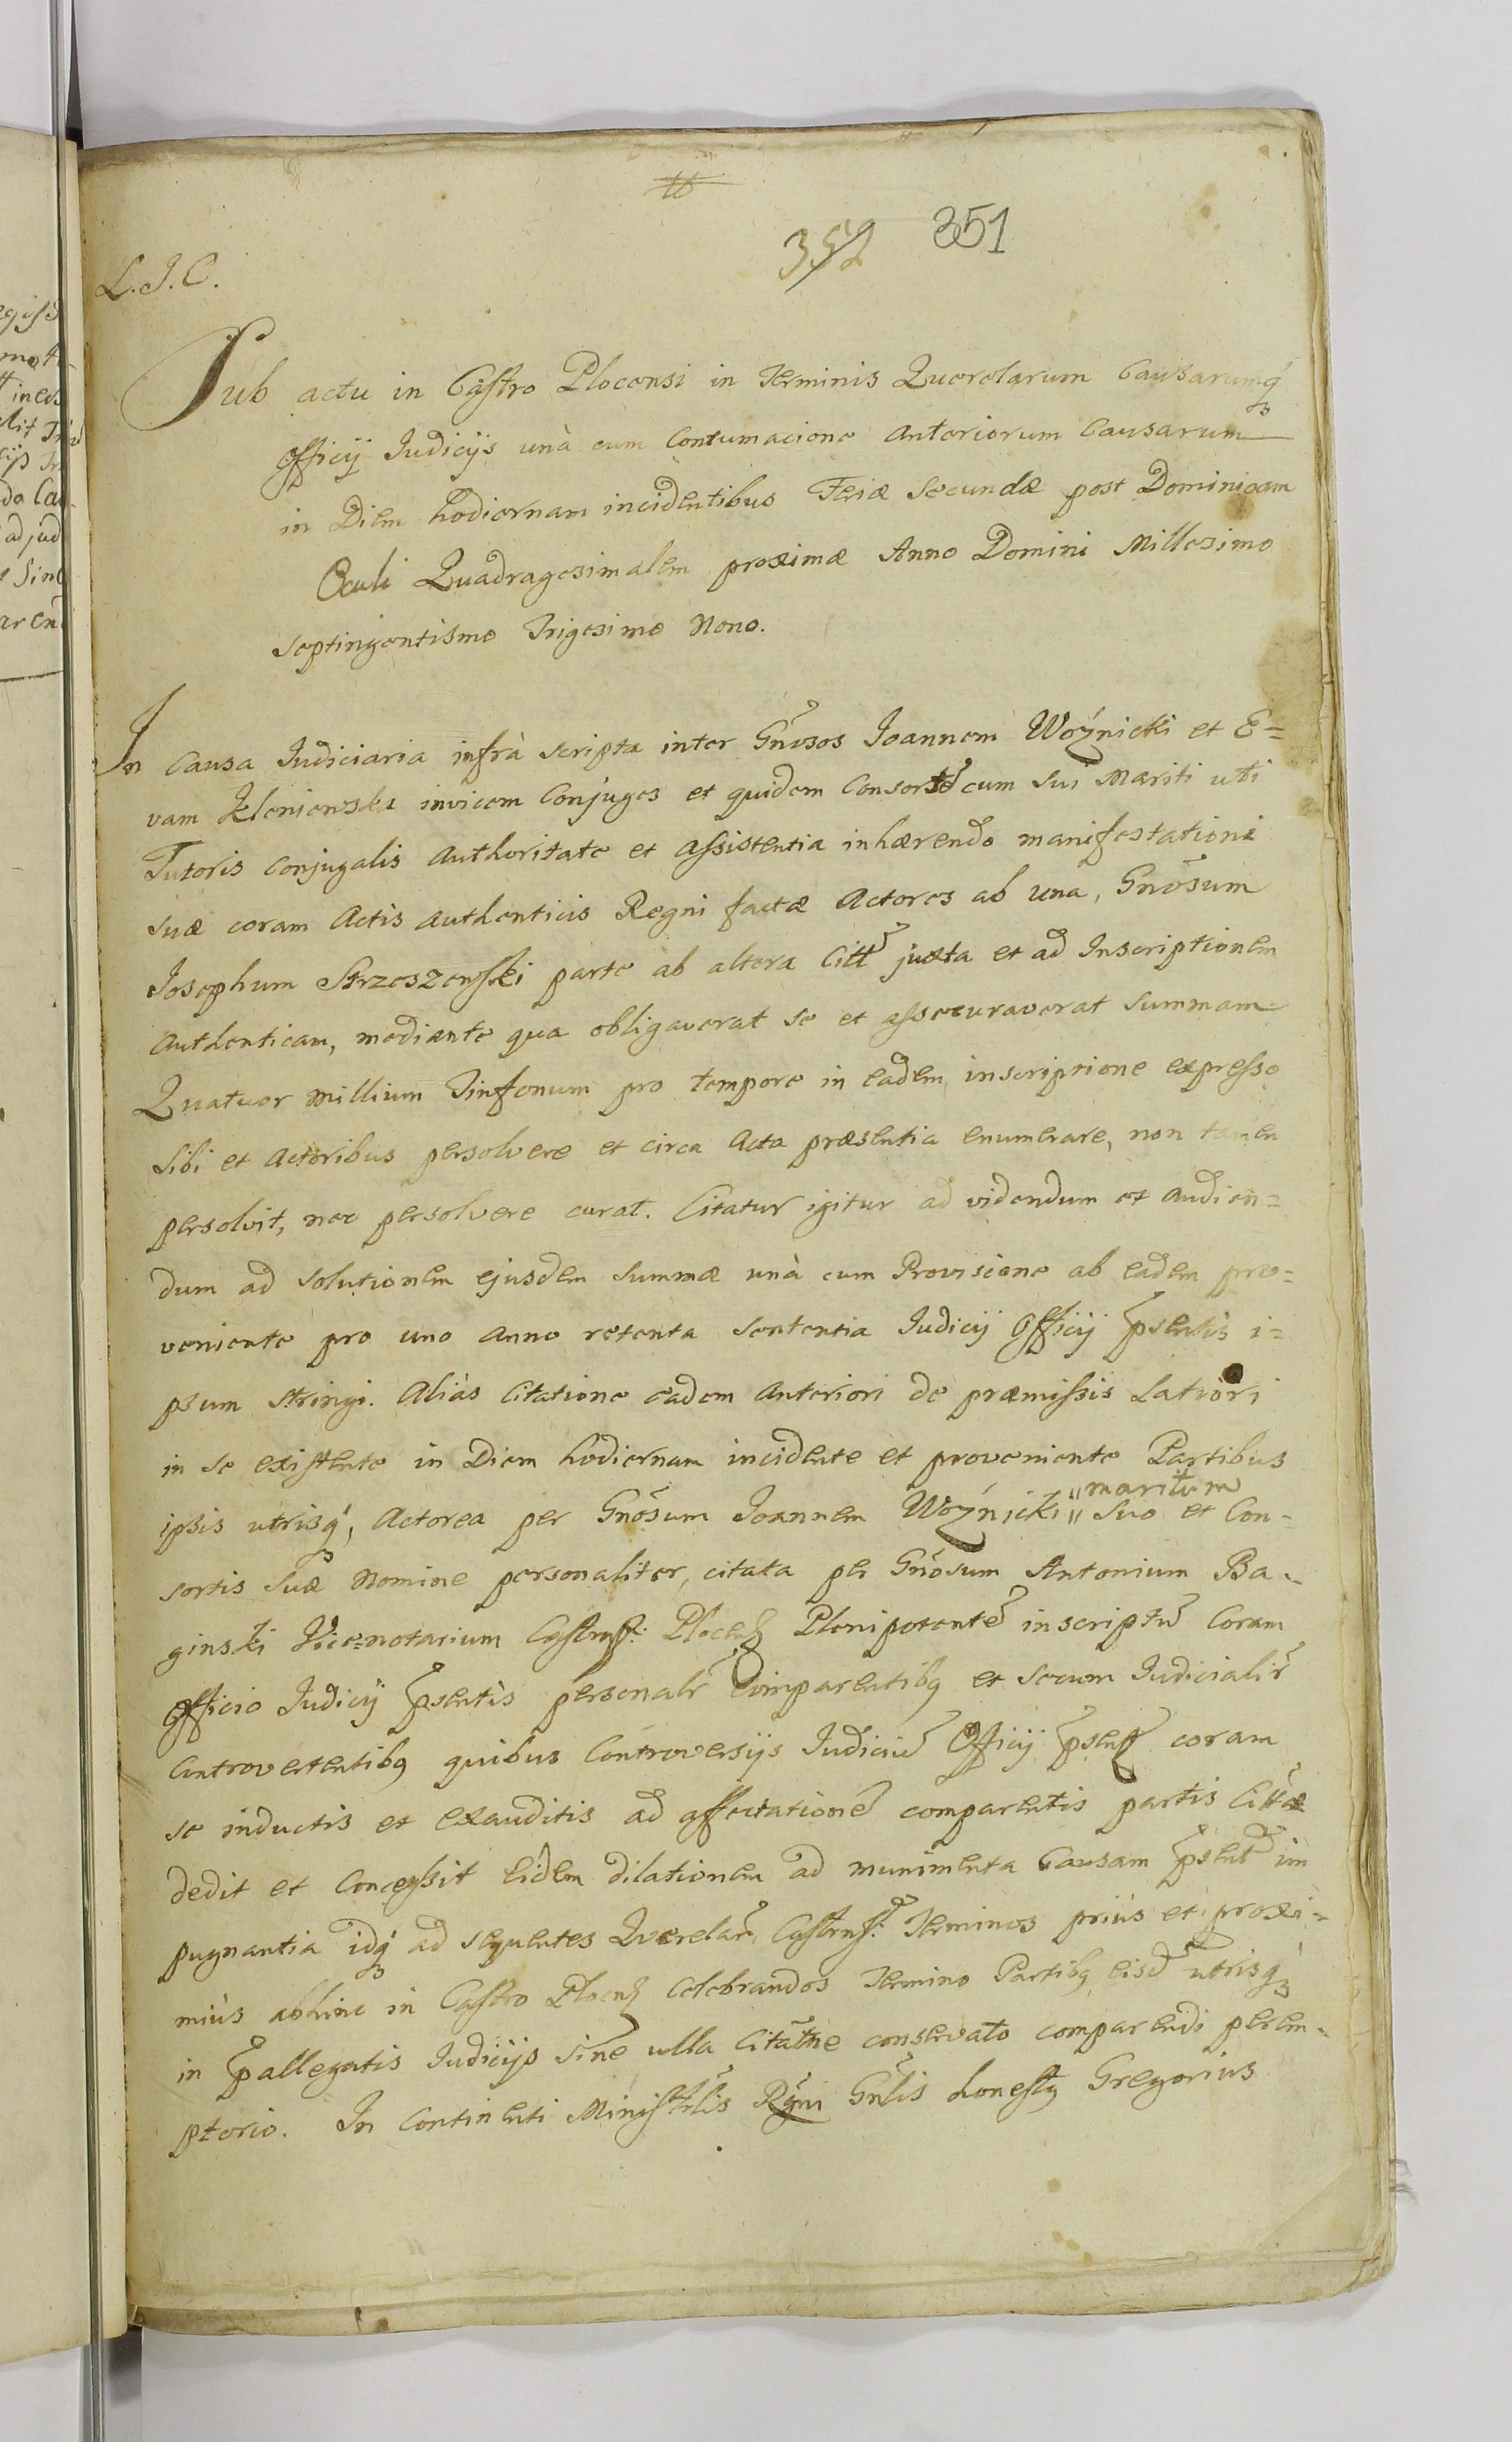 352 351
L. J. C.
Sub actu in Castro Plocensi in Terminis Querelarum Causarumq́
Officij Judicijs unà cum Contumacione Anteriorum Causarum
in Diem hodiernam incidentibus Feriæ Secundæ post Dominicam
Oculi Quadragesimalem proximæ Anno Domini Millesimo
Septingentismo Trigesimo Nono.
In Causa Judiciaria infrà scripta inter Gnosos Joannem Woźnicki et E=
vam invicem Conjuges et quidem Consorte cum sui Mariti uti
Tutoris Conjugalis Authoritate et Assistentia inhærendo manifestationi
suæ coram Actis Authenticis Regni factæ Actores ab una, Gnõsum
Josephum Strzeszewski parte ab altera Citt juxta et ad Inscriptionem
Authenticam, mediante qua obligaverat se et assecuraverat Summam
Quatuor Millium Tinfonum pro tempore in eadem inscriptione expresso
Sibi et Actoribus persolvere et circa Acta præsentia enumerare, non tamen
persolvit, nec persolvere curat. Citatur igitur ad videndum et audien=
dum ad solutionem ejusdem Summæ unà cum Provisione ab eadem pro=
veniente pro uno Anno retenta Sententia Judicij Officij p̃sentis i=
psum stringi. Aliàs Citatione eadem Anteriori de præmissis Latiori
in se existente in Diem hodiernam incidente et proveniente Partibus
ipsis utrisq́, Actorea per Gnõsum Joannem Woźnicki " maritum " Suo et Con=
sortis Suæ Nomine personaliter, citata per Gnõsum Antonium Ba=
ginski Vice=notarium Castren: Plocen Plenipotentẽ inscriptũ Coram
Officio Judicij p̃sentis personalr̃ Comparentibq et secum Judicialir̃
Controvertentibq quibus Controversijs Judiciũ Officij p̃sens coram
se inductis et exauditis ad affectationẽ comparentis partis Cittæ
dedit et Concessit eidem dilationem ad munimenta Causam p̃sent im
pugnantia idq́ ad sequentes Querelar̃ Castren: Terminos priùs et proxi=
miùs abhinc in Castro Plocen Celebrandos Termino Partibq eisd utrisq
in p̃allegatis Judicijs sine ulla Citatne conservato comparendi perem=
ptorio. In Continenti Ministrlis Rgni Gnlis honestq Gregorius